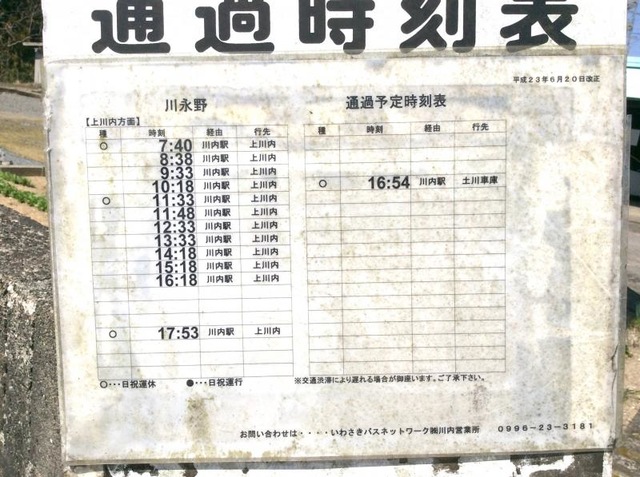 通過時刻表
平成23年6月20日改正
川永野 通過予定時刻表
【上川内方面】
種 時刻 経由 行先
○ 7:40 川内駅 上川内
8:38 川内駅 上川内
9:33 川内駅 上川内
10:18 川内駅 上川内
○ 11:33 川内駅 上川内
11:48 川内駅 上川内
12:33 川内駅 上川内
13:33 川内駅 上川内
14:18 川内駅 上川内
15:18 川内駅 上川内
16:18 川内駅 上川内
○ 17:53 川内駅 上川内
○・・・日祝運休 ●・・・日祝運行
種 時刻 経由 行先
○ 16:54 川内駅 土川車庫
※交通渋滞により遅れる場合が御座います。ご了承下さい。
お問い合わせは・・・・いわさきバスネットワーク㈱川内営業所 0996-23-3181